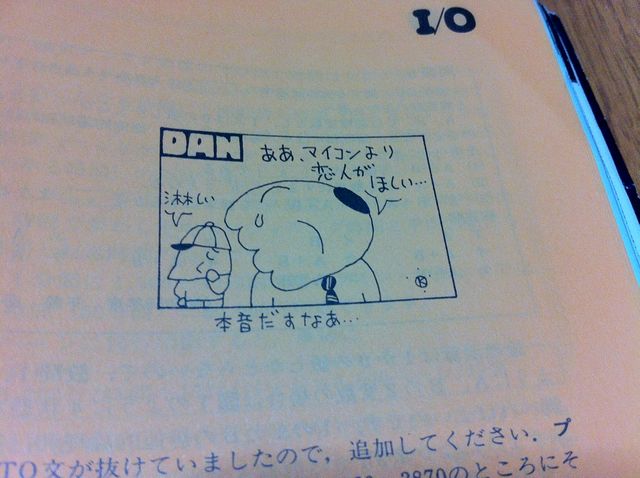 I/O
DAN
ああ、マイコンより
恋人が
ほしい…
淋しい
本音だすなあ…
TO文が抜けていましたので，追加してください．プ
2870のところにそ